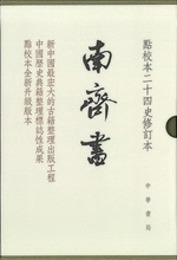 點校本二十四史修訂本
南齊書
新中國最宏大的古籍整理出版工程
中國歷史典籍整理標誌性成果
點校本全新升級版本
中華書局